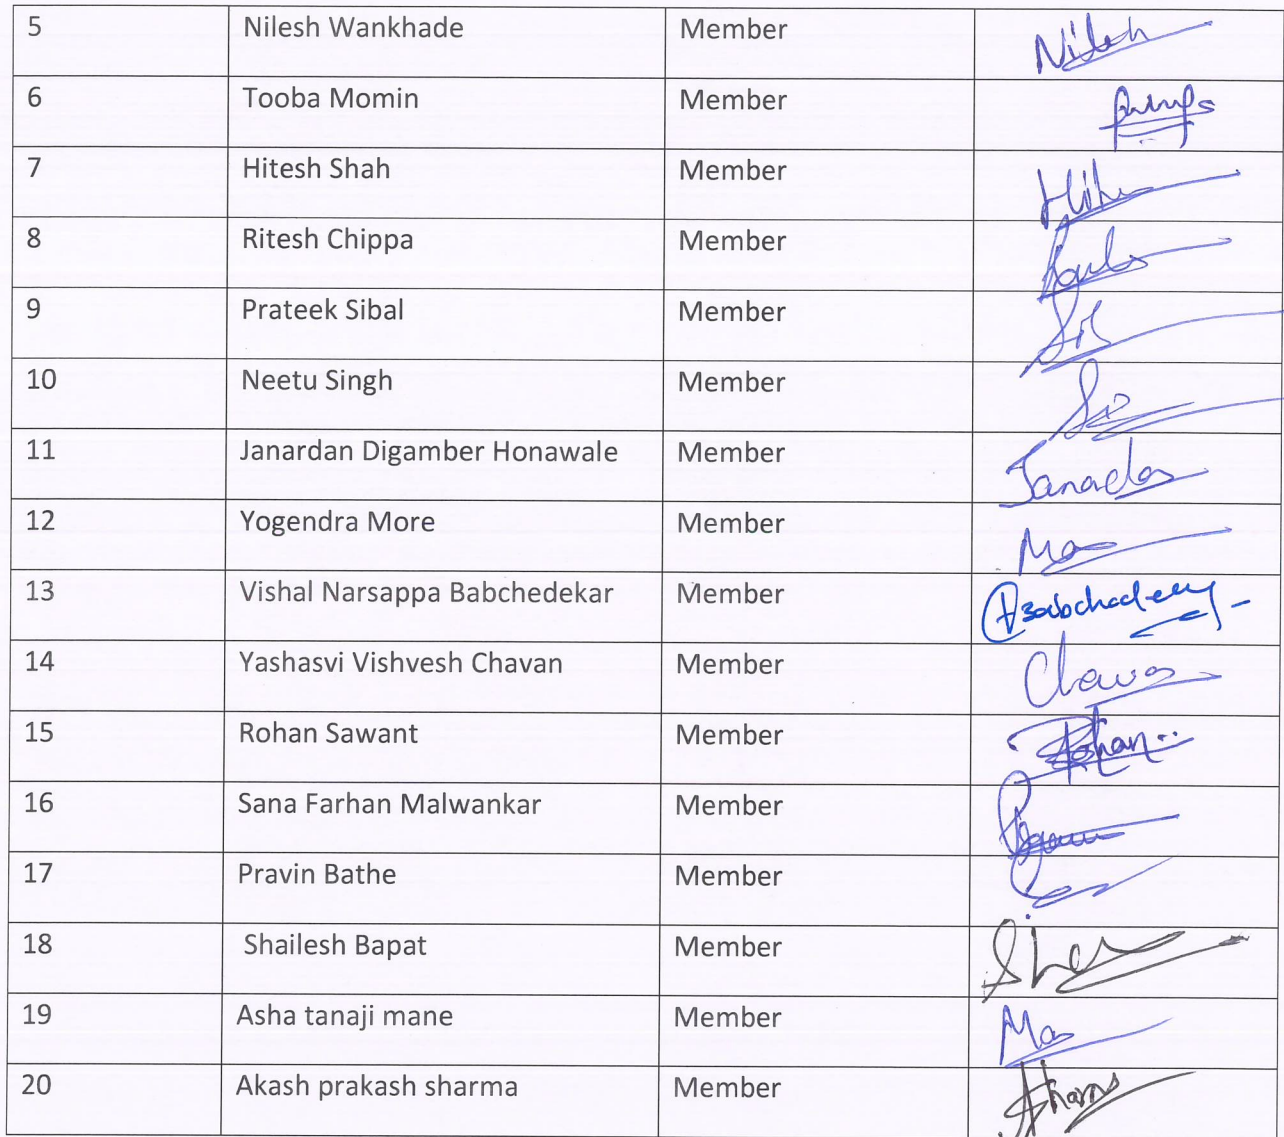 5 Nilesh Wankhade Member Nilesh
6 Tooba Momin Member
7 Hitesh Shah Member
8 Ritesh Chippa Member
9 Prateek Sibal Member
10 Neetu Singh Member
11 Janardan Digamber Honawale Member
12 Yogendra More Member
13 Vishal Narsappa Babchedekar Member
14 Yashasvi Vishvesh Chavan Member
15 Rohan Sawant Member Rohan
16 Sana Farhan Malwankar Member
17 Pravin Bathe Member
18 Shailesh Bapat Member
19 Asha tanaji mane Member
20 Akash prakash sharma Member